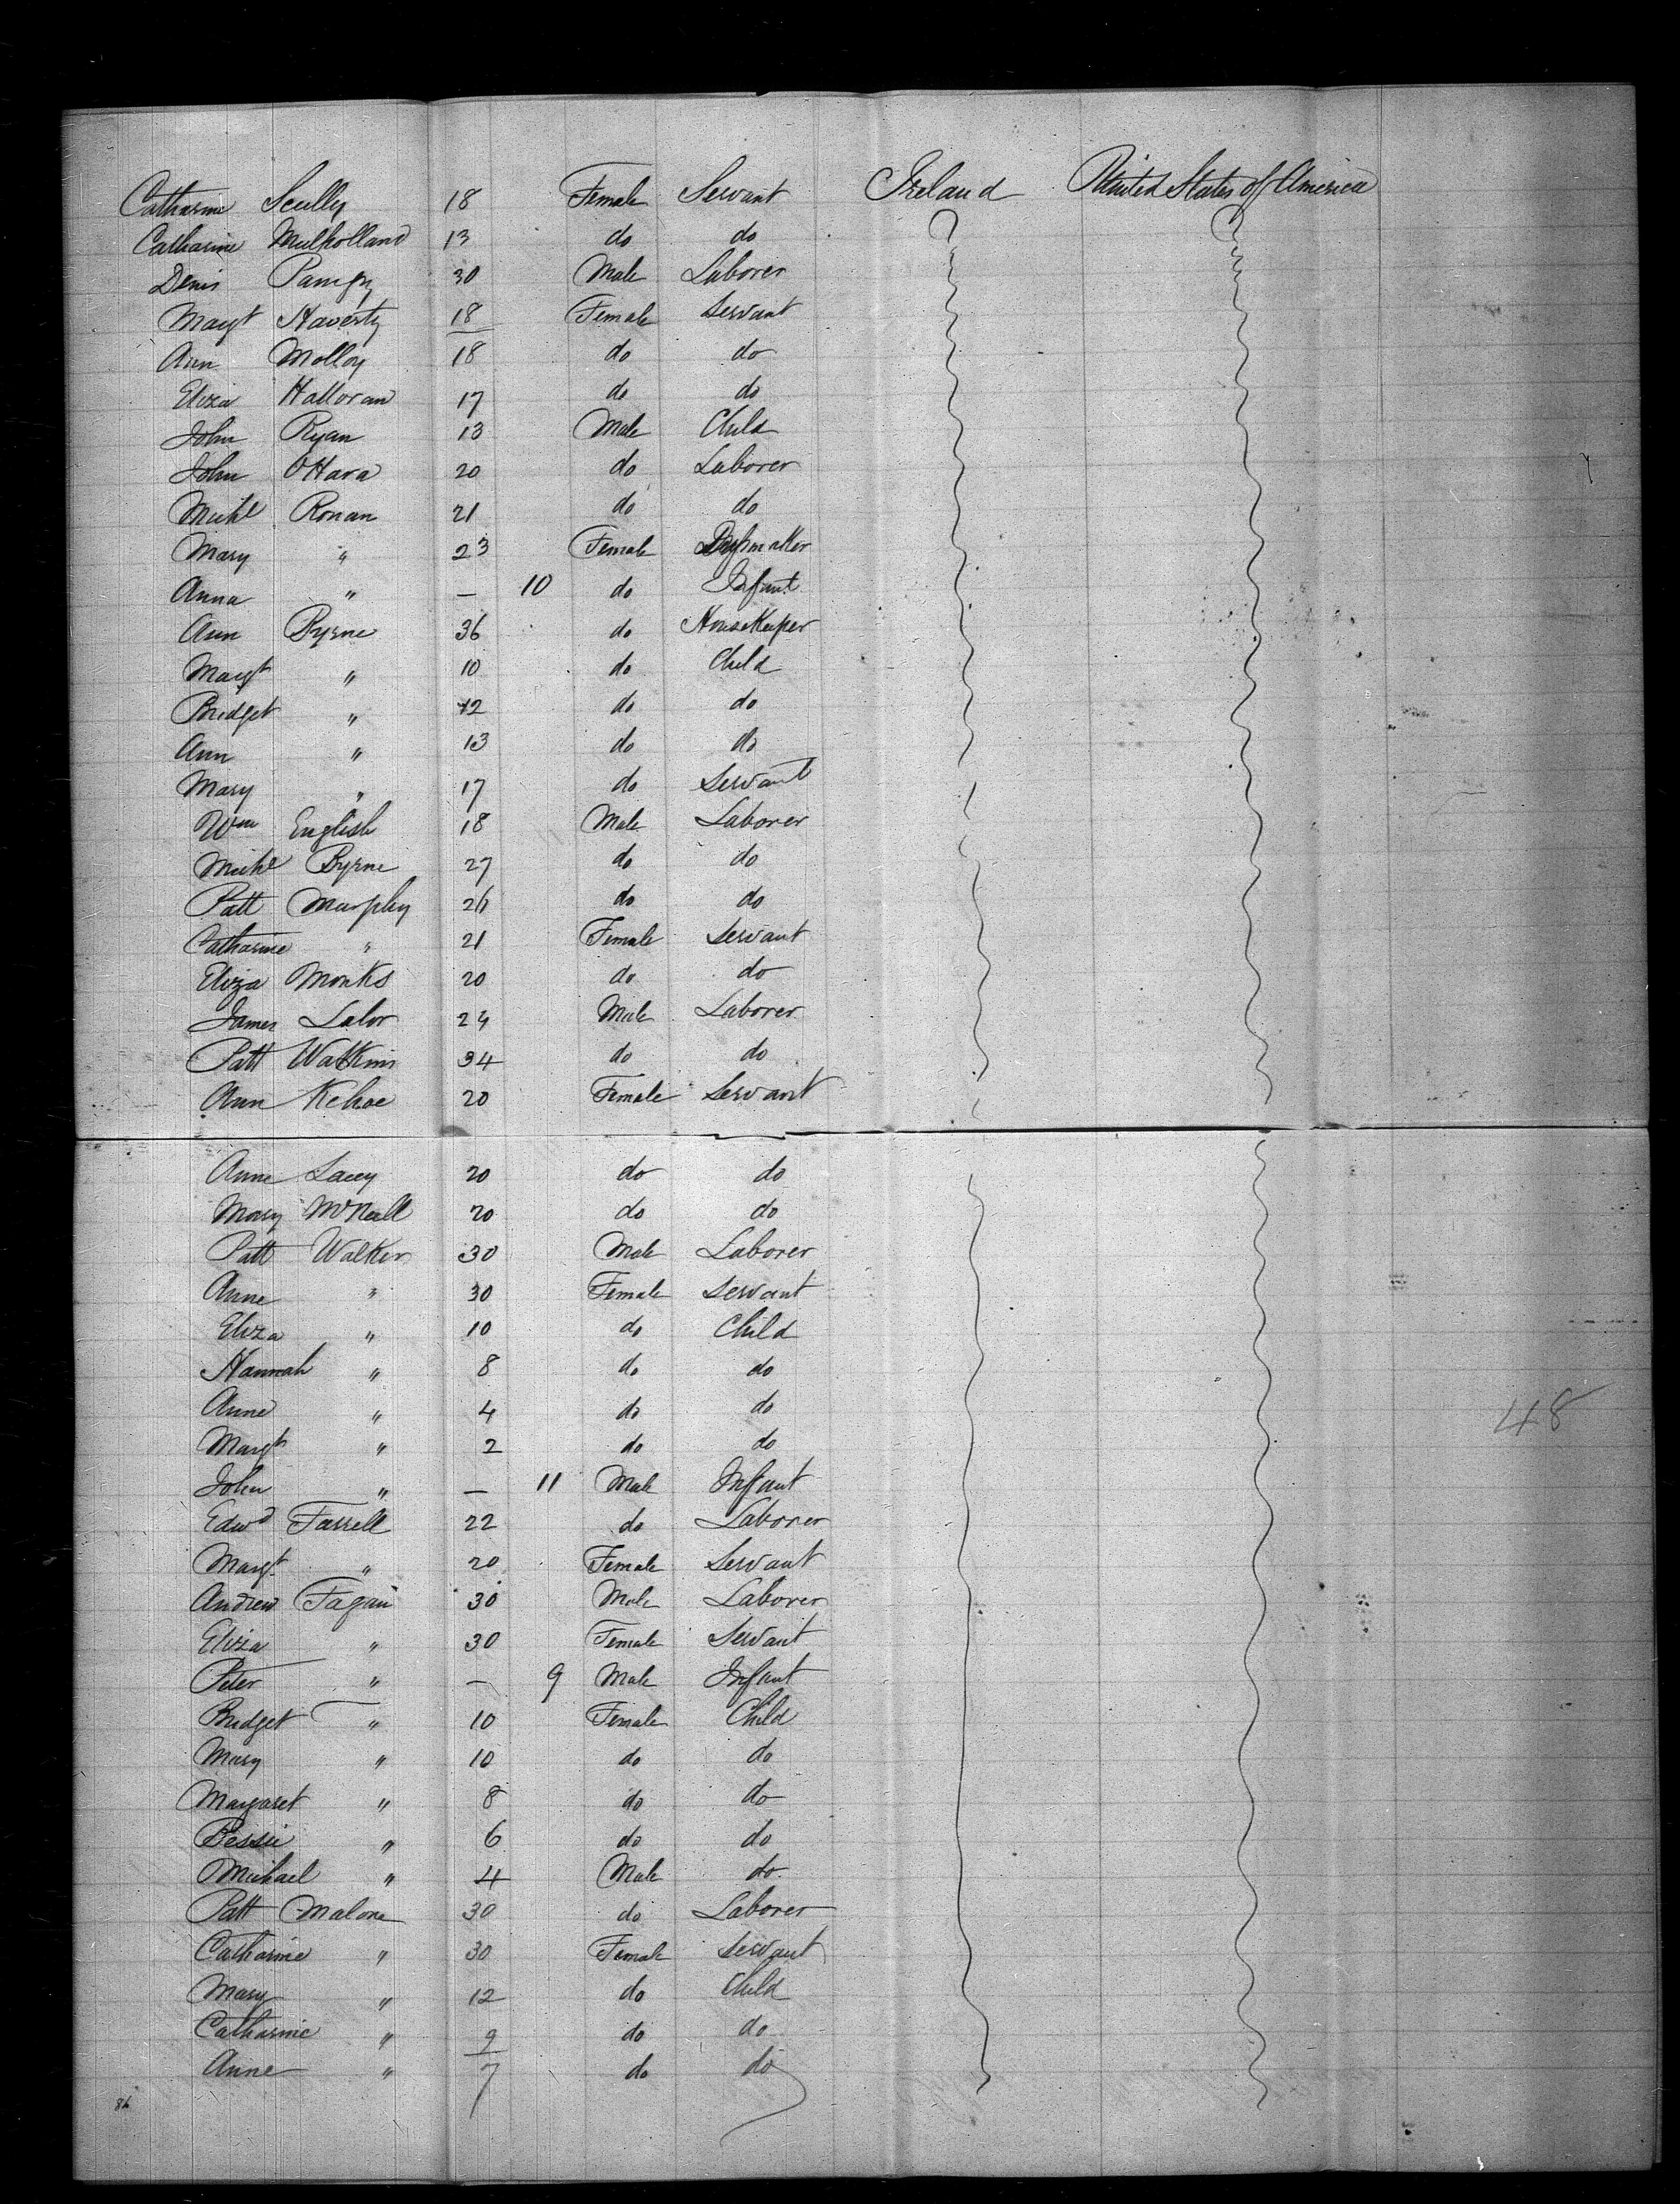 Catharine Scully 18 Female Servant Ireland United States of America
Catharine Mulholland 13 do do
Denis 30 Male Laborer
Margt Haverty 18 Female Servant
Ann Molloy 18 do do
Eliza Halloran 17 do do
John Ryan 13 Male Child
John O'Hara 20 do Laborer
Michl Ronan 21 do do
Mary " 23 Female Dressmaker
Anna " — 10 do Infant
Ann Byrne 36 do HouseKeeper
Margt " 10 do Child
Bridget " 12 do do
Ann " 13 do do
Mary " 17 do Servant
Wm English 18 Male Laborer
Michl Byrne 27 do do
Patt Murphy 26 do do
Catharine " 21 Female Servant
Eliza Monks 20 do do
James Lalor 24 Male Laborer
Patt Watkins 34 do do
Ann Kehoe 20 Female Servant
Anne Lacey 20 do do
Mary McNeill 20 do do
Patt Walker 30 Male Laborer
Anne " 30 Female Servant
Eliza " 10 do Child
Hannah " 8 do do
Anne " 4 do do
Margt " 2 do do
John " — 11 Male Infant
Edwd Farrell 22 do Laborer
Margt " 20 Female Servant
Andrew Fagan 30 Male Laborer
Eliza " 30 Female Servant
Peter " — 9 Male Infant
Bridget " 10 Female Child
Mary " 10 do do
Margaret " 8 do do
Bessie " 6 do do
Michael " 4 Male do
Patt Malone 30 do Laborer
Catharine " 30 Female Servant
Mary " 12 do Child
Catharine " 9 do do
Anne " 7 do do
48